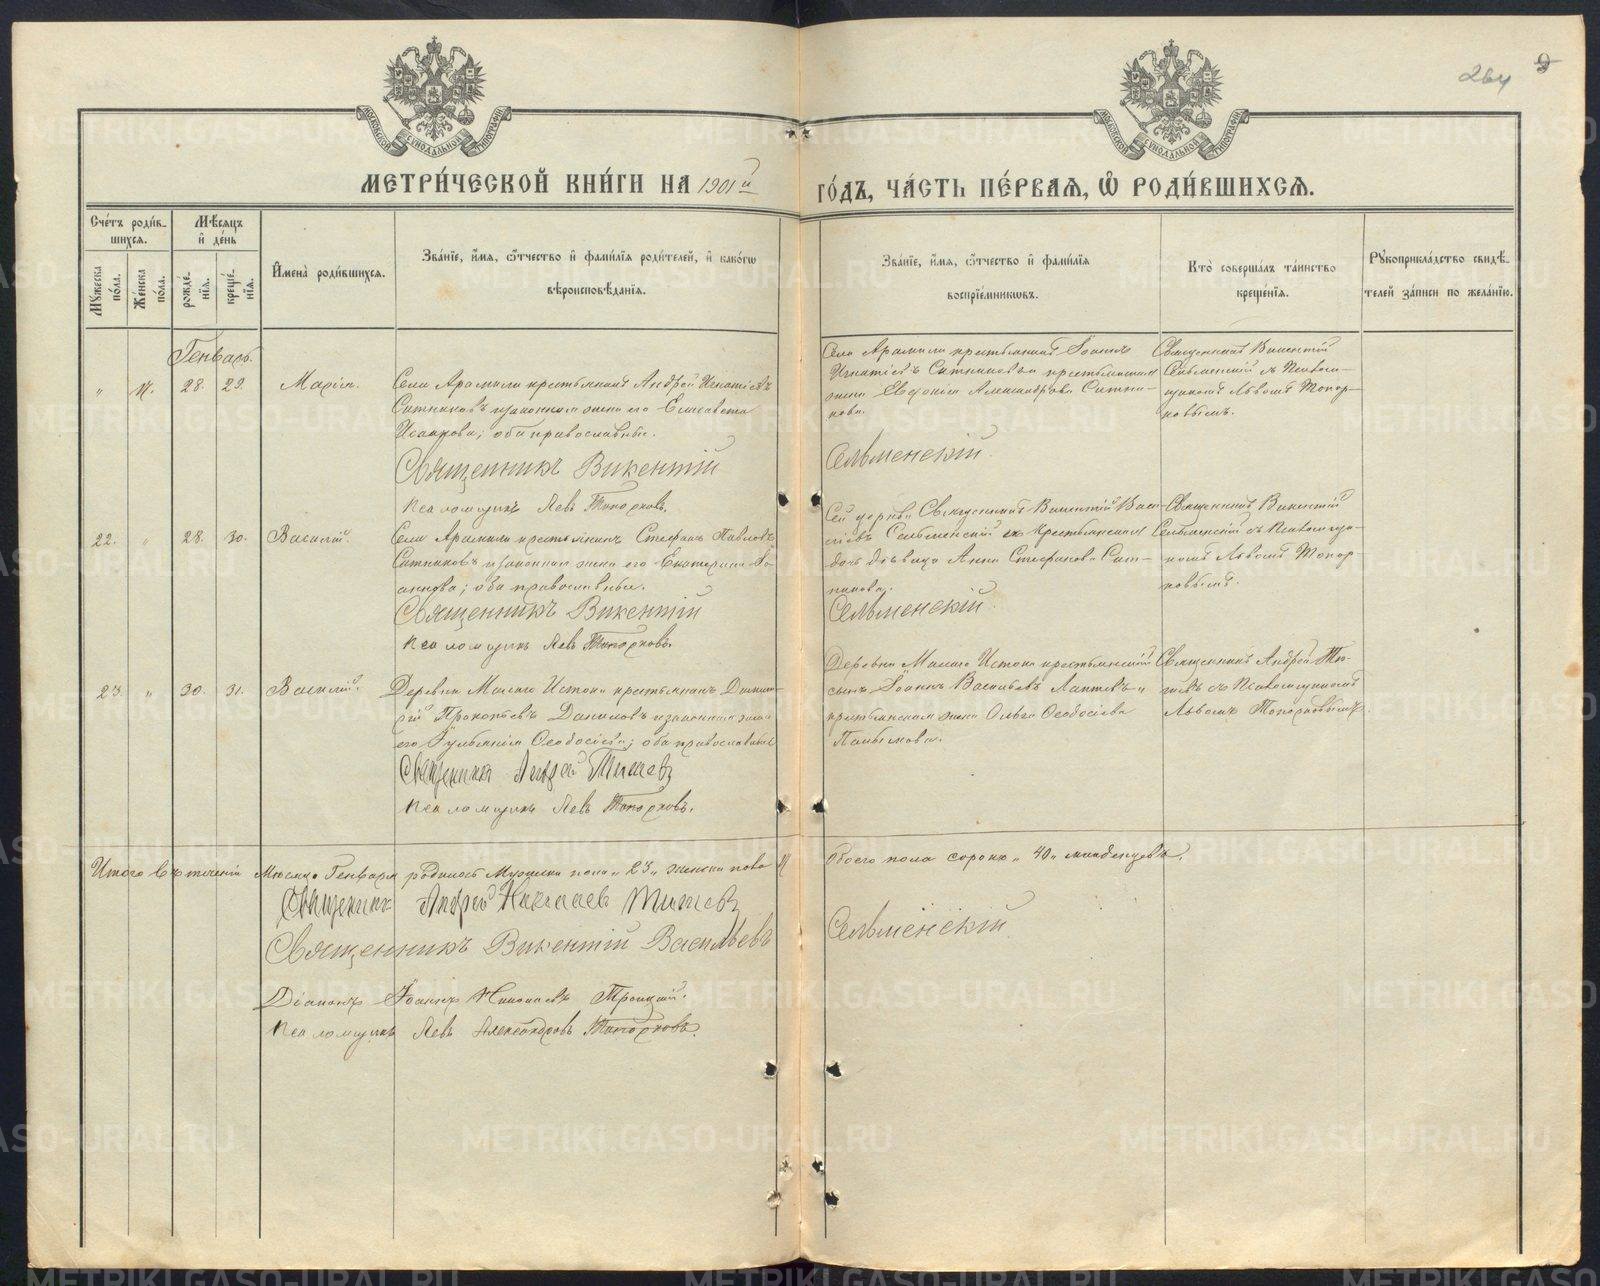 264 9
МОСКОВСКОЙ СѴНОДАЛЬНОЙ ТИПОГРАФІИ
МОСКОВСКОЙ СѴНОДАЛЬНОЙ ТИПОГРАФІИ
МЕТРИ́ЧЕСКОЙ КНИ́ГИ НА 1901й
ГО́ДЪ, ЧА́СТЬ ПЕ́РВАЯ, Ѡ҆ РОДИ́ВШИХСЯ.
Сче́тъ роди́в-
шихся.
Мꙋ́жеска по́ла.
Же́нска пола.
Мѣ́сяцъ
и҆ де́нь
рожде́-
нїя.
креще́-
нїя.
И҆мена̀ роди́вшихся.
Зва́нїе, и҆́мя, ѻ҆́тчество и҆ фами́лїя роди́телей, и҆ како́гѡ
вѣроисповѣ́данїя.
Зва́нїе, и҆́мя, ѻ҆́тчество и҆ фами́лїя
воспрїе́мникѡвъ.
Кто̀ соверша́лъ та́инство
креще́нїя.
Рꙋкоприкла́дство свидѣ́-
телей за́писи по жела́нїю.
Генварь.
" 17. 28. 29. Марія.
Села Арамили крестьянинъ Андрей Игнатіевъ
Ситниковъ и законная жена его Елисавета
оба православные.
Священникъ Викентій
Псаломщикъ Левъ Топорковъ.
Села Арамили крестьянинъ Іоаннъ
Игнатіевъ Ситниковъ и крестьянская
жена Евдокія Александрова Ситни-
кова.
Сельменскій.
Священникъ Викентій
Сельменскій съ Псалом-
щикомъ Львомъ Топор-
ковымъ.
22. " 28. 30. Василій.
Села Арамили крестьянинъ Стефанъ Павловъ
Ситниковъ и законная жена его Екатерина Іо-
аннова; оба православные.
Священникъ Викентій
Псаломщикъ Левъ Топорковъ.
Сей церкви Священникъ Викентій Васи-
ліевъ Сельменскій и крестьянская
дочь дѣвица Анна Стефанова Сит-
никова.
Сельменскій.
Священникъ Викентій
Сельменскій съ Псаломщи-
комъ Львомъ Топор-
ковымъ.
23. " 30. 31. Василій.
Деревни Малаго Истока крестьянинъ Димит-
рій Прокопьевъ Даниловъ и законная жена
его Іуліанія Ѳеодосіева; оба православные
Священникъ Андрей
Псаломщикъ Левъ Топорковъ.
Деревни Малаго Истока крестьянскій
сынъ Іоаннъ Васильевъ Лаптевъ и
крестьянская жена Ольга Ѳеодосіева
Священникъ Андрей
съ Псаломщикомъ
Львомъ Топорковымъ
Итого въ теченіи Мѣсяца Генваря родилось Мужска пола "23" женска пола 17
Обоего пола сорокъ "40" младенцевъ.
Священникъ Андрей Николаевъ
Священникъ Викентій Васильевъ
Сельменскій.
Діаконъ Іоаннъ Николаевъ Троицкій.
Псаломщикъ Левъ Александровъ Топорковъ.